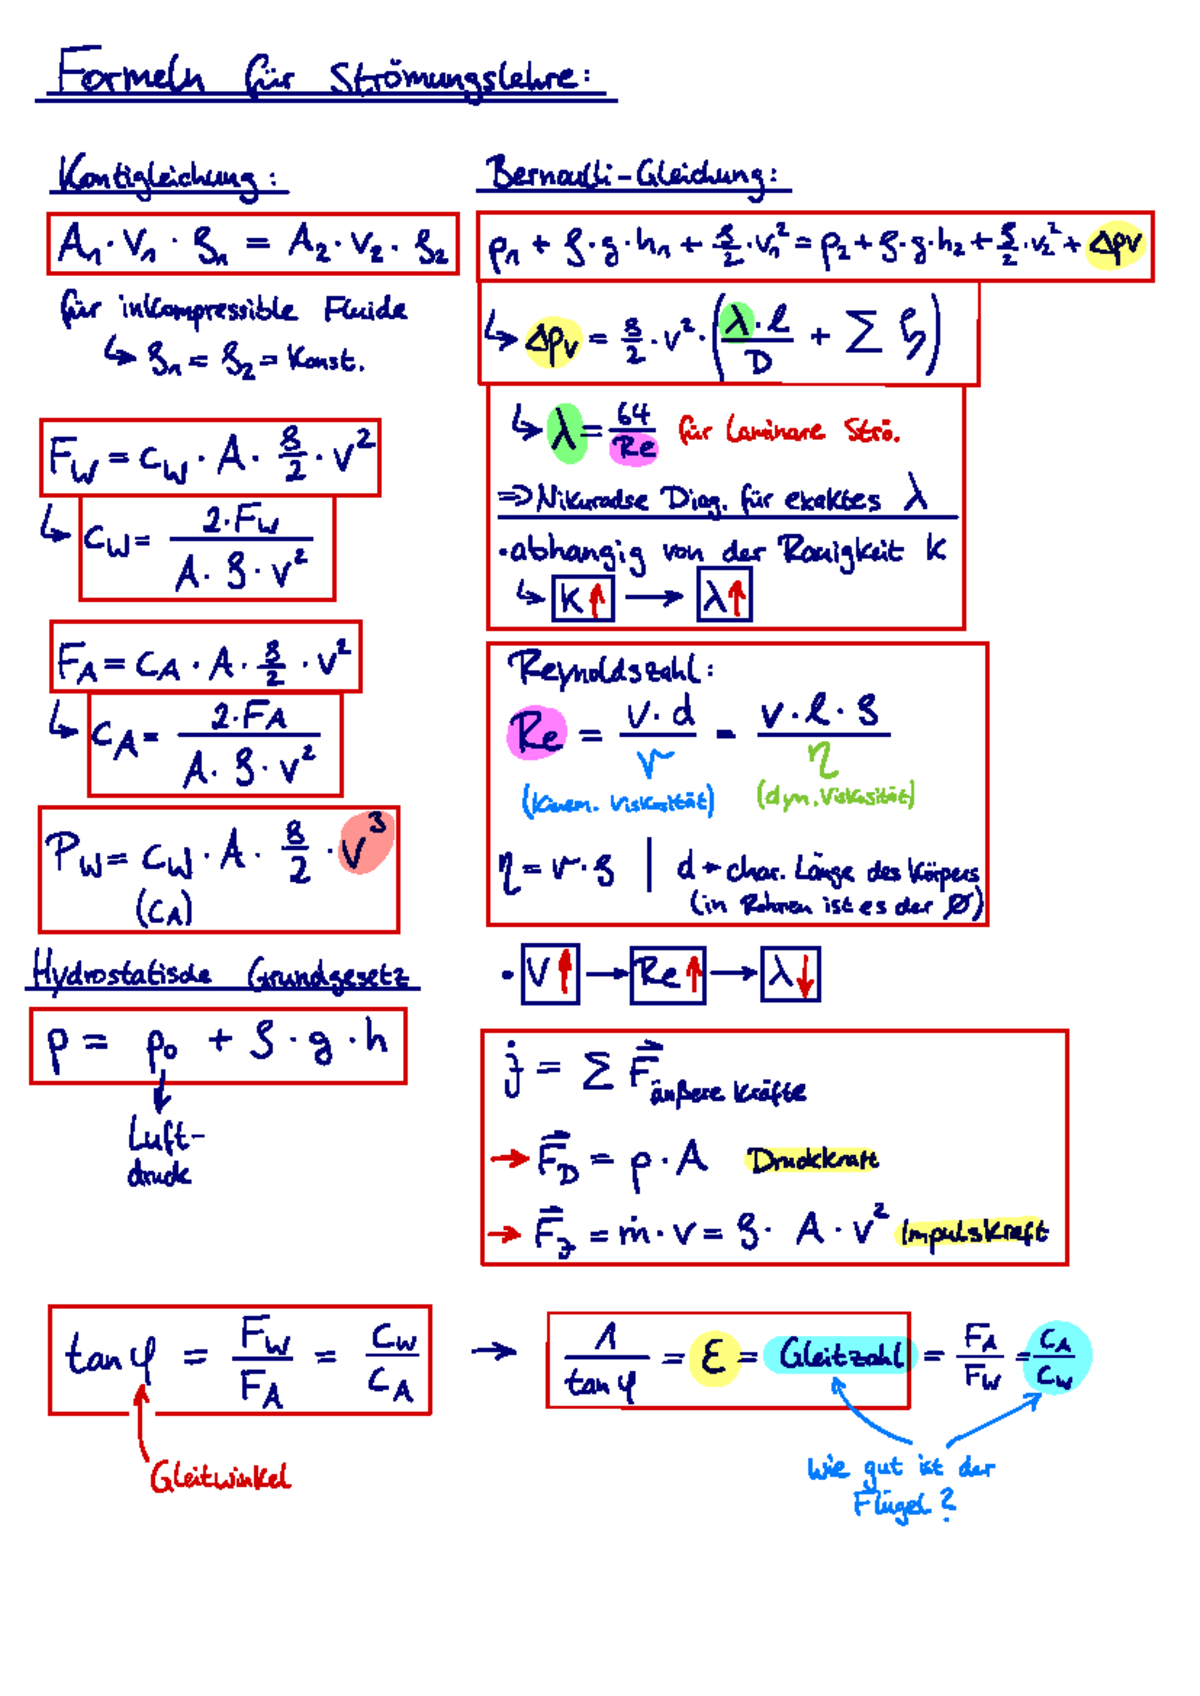 Formeln für Strömungslehre:
Kontigleichung:
A₁ · v₁ · ρ₁ = A₂ · v₂ · ρ₂
für inkompressible Fluide
↳ ρ₁ = ρ₂ = konst.
F_W = c_W · A · ρ/2 · v²
↳ c_W = 2·F_W / (A · ρ · v²)
F_A = c_A · A · ρ/2 · v²
↳ c_A = 2·F_A / (A · ρ · v²)
P_W = c_W · A · ρ/2 · v³
(c_A)
Hydrostatische Grundgesetz
p = p₀ + ρ · g · h
↓
Luft-
druck
Bernoulli-Gleichung:
p₁ + ρ·g·h₁ + ρ/2·v₁² = p₂ + ρ·g·h₂ + ρ/2·v₂² + Δpv
↳ Δpv = ρ/2 · v² · (λ·l/D + Σ ζ)
↳ λ = 64/Re für Laminare Strö.
=> Nikuradse Diag. für exaktes λ
· abhangig von der Rauigkeit k
↳ k↑ → λ↑
Reynoldszahl:
Re = v·d/ν = v·l·ρ/η
(kinem. Viskosität) (dyn. Viskosität)
η = ν·ρ | d → char. Länge des Körpers
(in Rohren ist es der Ø)
• v↑ → Re↑ → λ↓
j̇ = Σ F⃗ äußere Kräfte
→ F⃗_D = p · A Druckkraft
→ F⃗_J = ṁ · v = ρ · A · v² Impulskraft
tan φ = F_W/F_A = c_W/c_A → 1/tan φ = ε = Gleitzahl = F_A/F_W = c_A/c_W
Gleitwinkel
Wie gut ist der
Flügel?